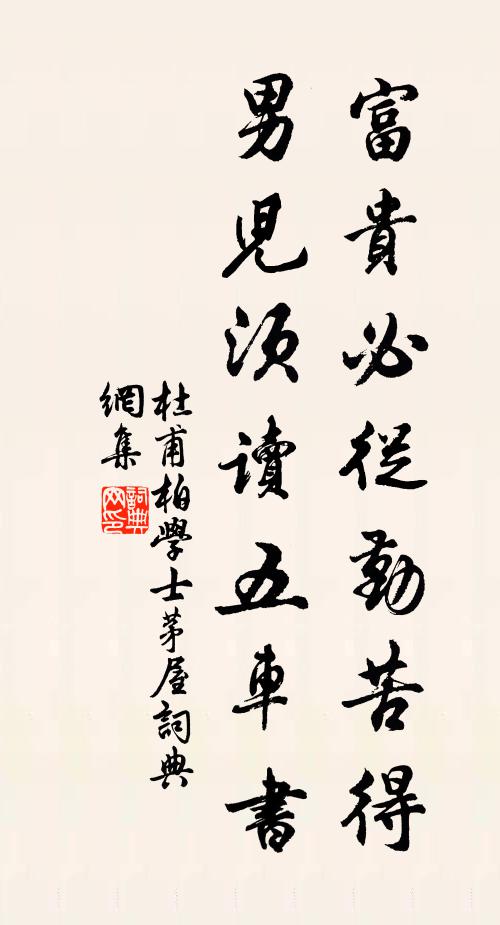 富貴必從勤苦得
男兒須讀五車書
杜甫柏學士茅屋詞典
網集
詞典
网印